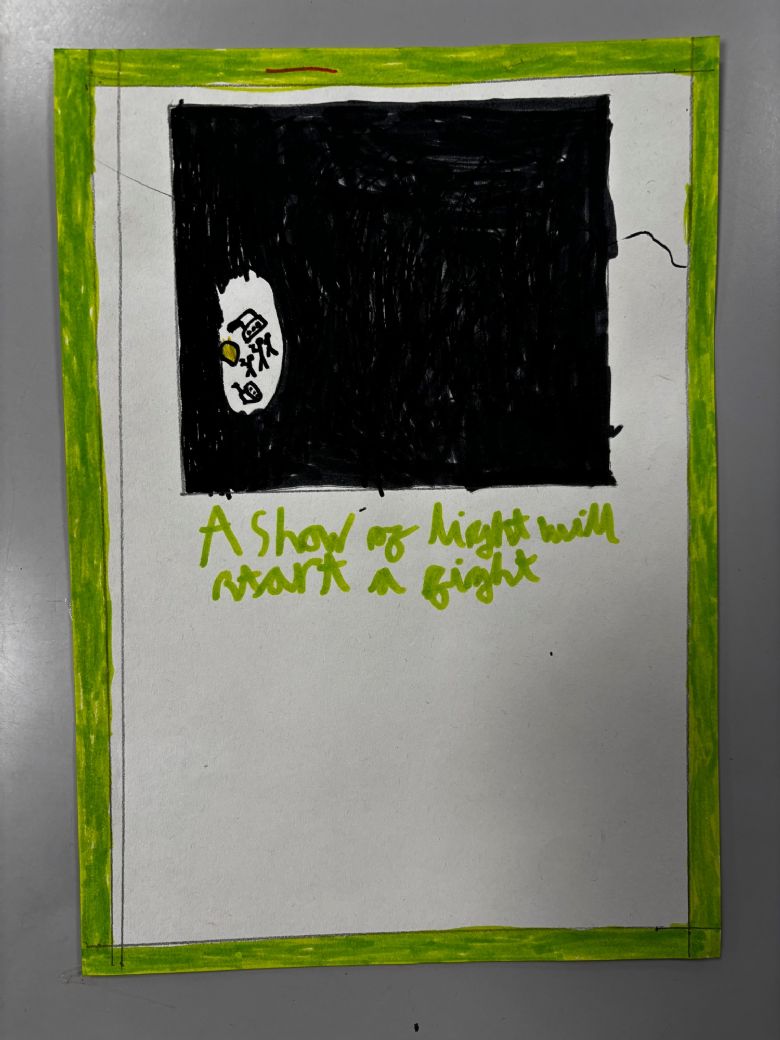 A show of light will
start a fight